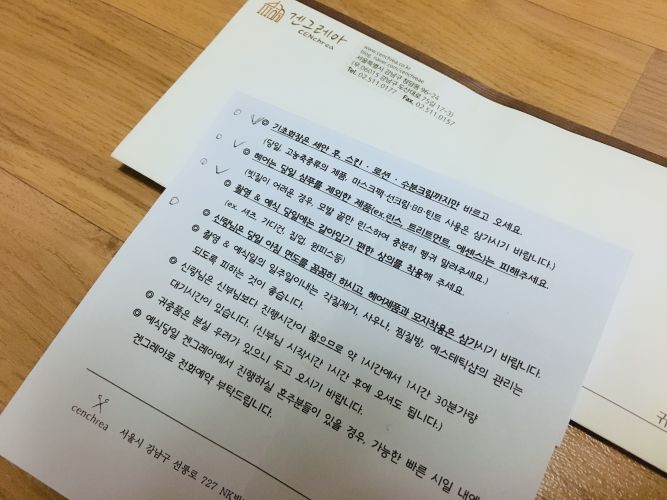 겐그레아
CENchrea
www.cenchrea.co.kr
blog. naver.com/cenchreae
서울특별시 강남구 청담동 96-24
(우.06015 강남구 도산대로 75길 17-3)
Tel. 02.511.0177 Fax. 02.511.0157
◎ 기초화장은 세안 후, 스킨·로션·수분크림까지만 바르고 오세요.
(당일, 고농축종류의 제품, 마스크팩·선크림·BB·틴트 사용은 삼가시기 바랍니다.)
◎ 헤어는 당일 샴푸를 제외한 제품(ex.린스, 트리트먼트, 에센스)는 피해주세요.
(빗질이 어려운 경우, 모발 끝만 린스하여 충분히 헹궈 말려주세요.)
◎ 촬영 & 예식 당일에는 갈아입기 편한 상의를 착용해 주세요.
(ex. 셔츠, 가디건, 집업, 원피스등)
◎ 신랑님은 당일 아침 면도를 꼼꼼히 하시고, 헤어제품과 모자착용은 삼가시기 바랍니다.
◎ 촬영 & 예식일의 일주일이내는 각질제거, 사우나, 찜질방, 에스테틱샵의 관리는
되도록 피하는 것이 좋습니다.
◎ 신랑님은 신부님보다 진행시간이 짧으므로 약 1시간에서 1시간 30분가량
대기시간이 있습니다. (신부님 시작시간 1시간 후에 오셔도 됩니다.)
◎ 귀중품은 분실 우려가 있으니 두고 오시기 바랍니다.
◎ 예식당일 겐그레아에서 진행하실 혼주분들이 있을 경우, 가능한 빠른 시일 내에
겐그레아로 전화예약 부탁드립니다.
cenchrea 서울시 강남구 선릉로 727 NK